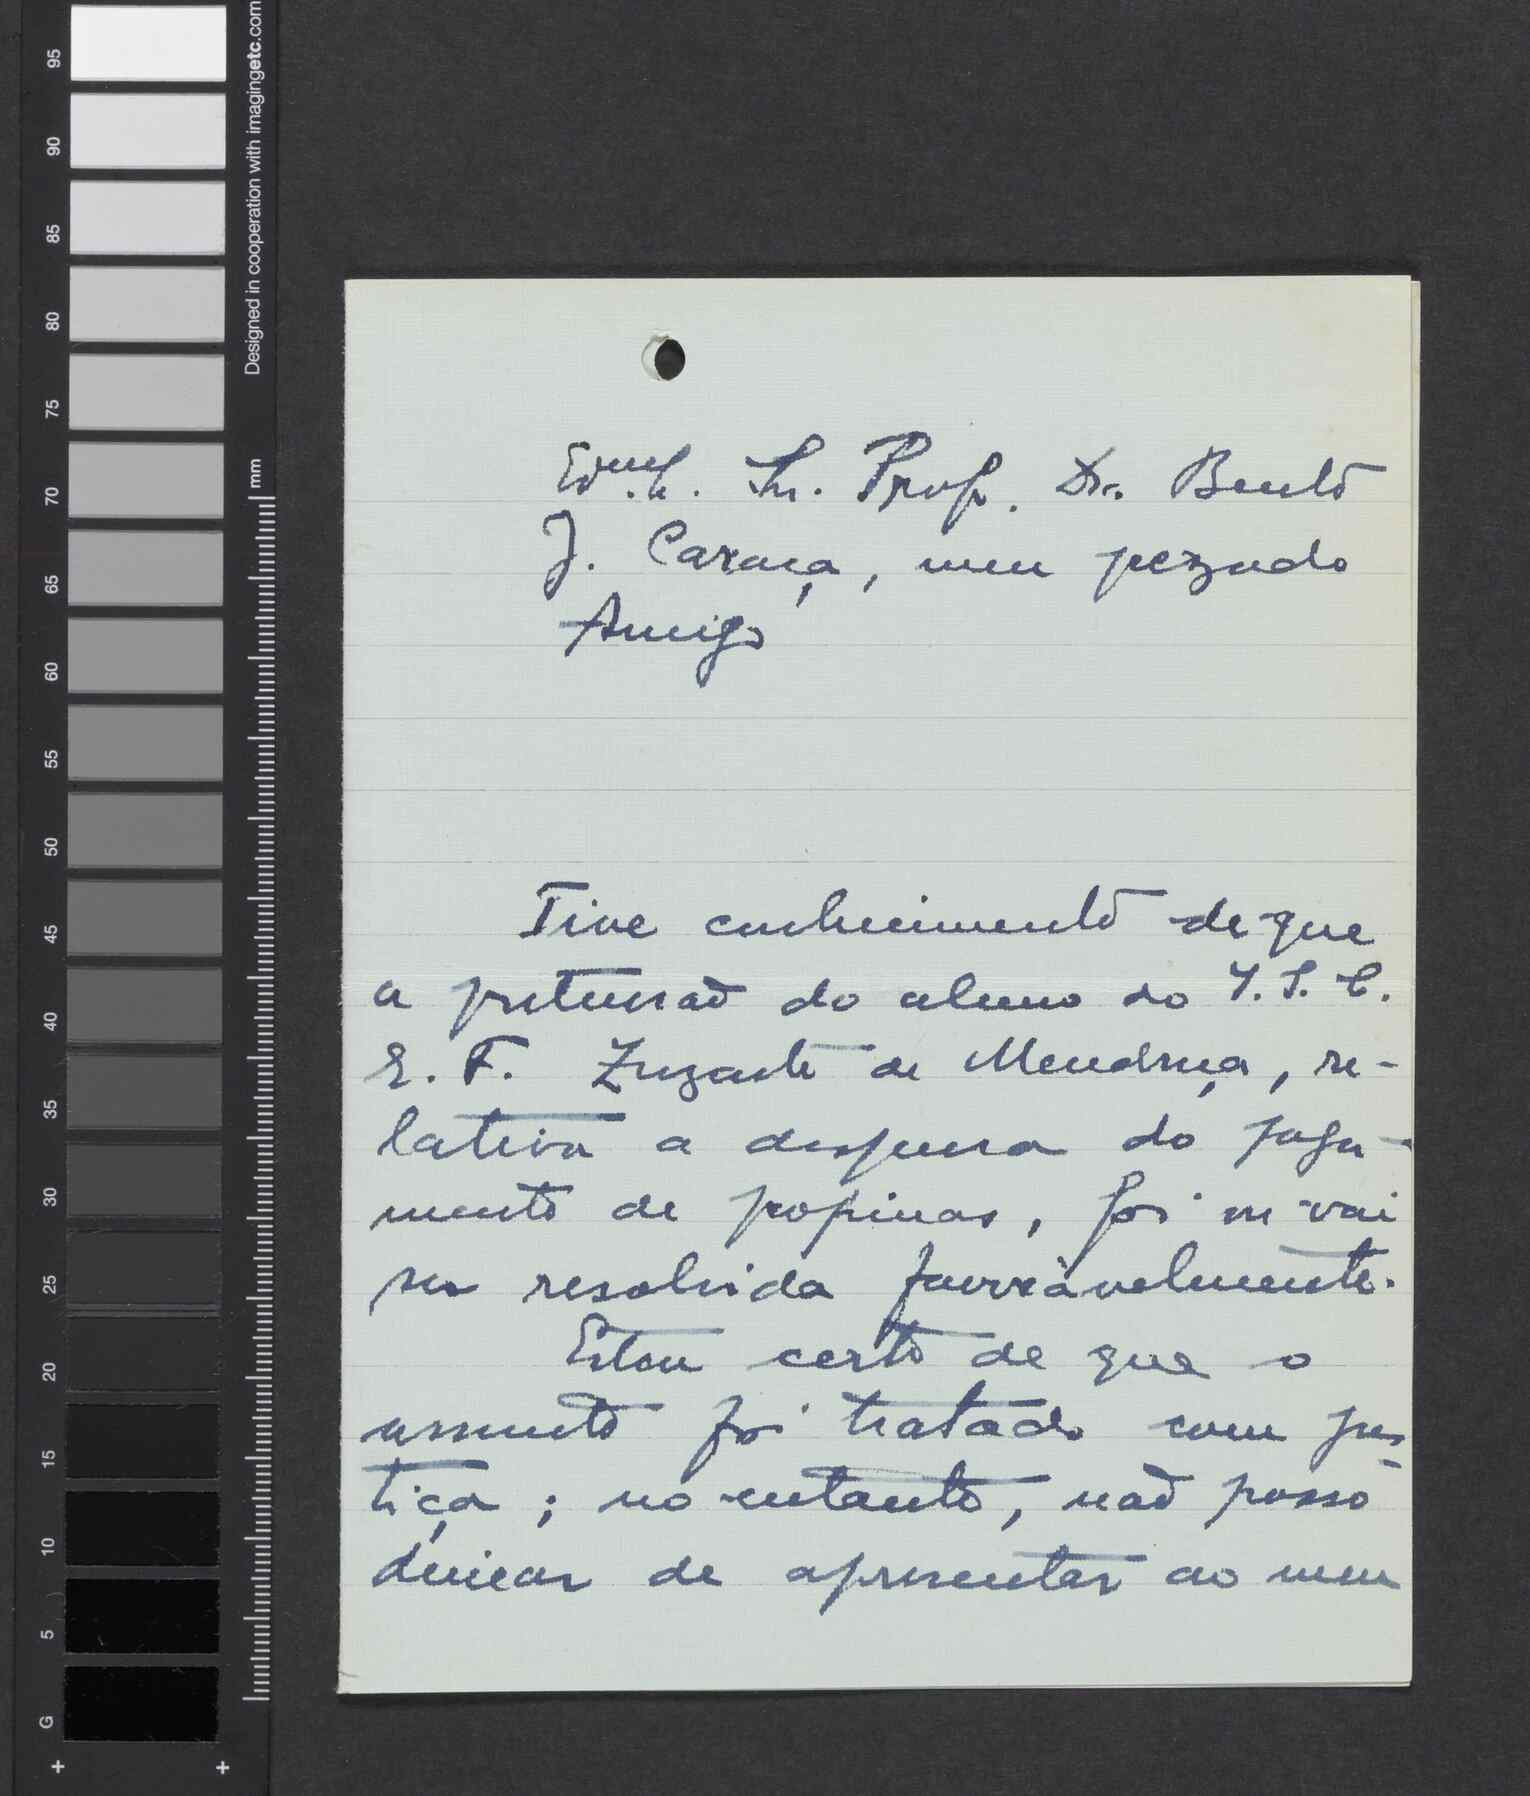 95
90
85
80
75
70
65
60
55
50
45
40
35
30
25
20
15
10
5
G
Designed in cooperation with imagingetc.com
mm
Exmo. Sr. Prof. Dr. Bento
J. Caraça, meu pezado
Amigo
Tive conhecimento de que
a pretensão do aluno do I. S. C.
E. F. Zuzarte de Mendonça, re-
lativa a dispensa do paga-
mento de propinas, foi ou vai
ser resolvida favoràvelmente.
Estou certo de que o
assunto foi tratado com jus-
tiça; no entanto, não posso
deixar de apresentar ao meu